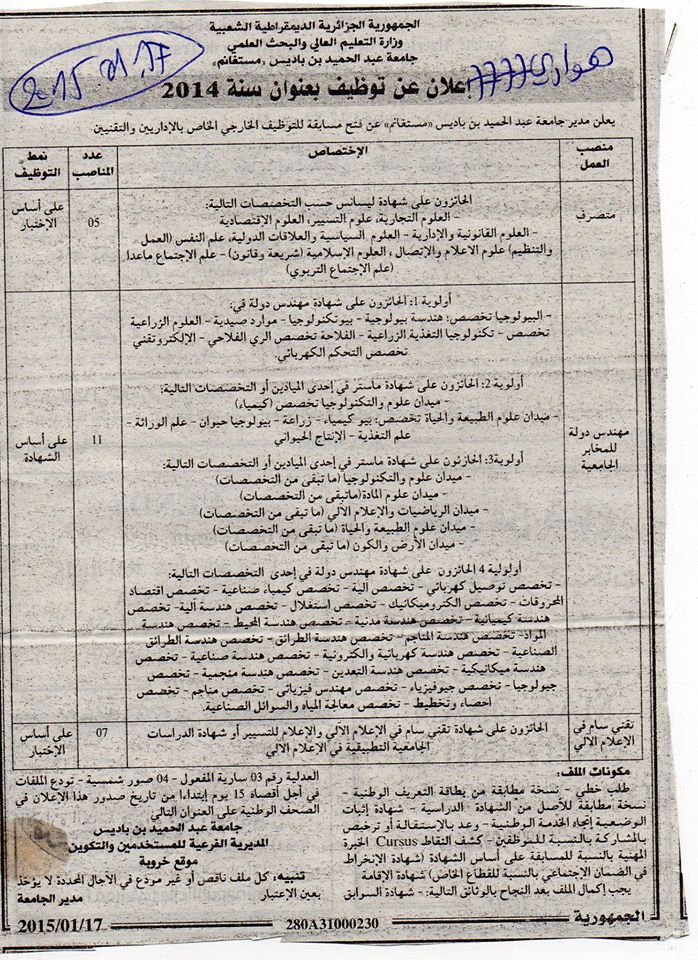 الجمهورية الجزائرية الديمقراطية الشعبية
وزارة التعليم العالي والبحث العلمي
جامعة عبد الحميد بن باديس «مستغانم»
2015.01.17
هواري
إعلان عن توظيف بعنوان سنة 2014
يعلن مدير جامعة عبد الحميد بن باديس «مستغانم» عن فتح مسابقة للتوظيف الخارجي الخاص بالإداريين والتقنيين
منصب العمل
الإختصاص
عدد المناصب
نمط التوظيف
متصرف
الحائزون على شهادة ليسانس حسب التخصصات التالية:
- العلوم التجارية، علوم التسيير، العلوم الإقتصادية
- العلوم القانونية والإدارية - العلوم السياسية والعلاقات الدولية، علم النفس (العمل
والتنظيم) علوم الاعلام والإتصال، العلوم الإسلامية (شريعة وقانون) - علم الإجتماع ماعدا
(علم الإجتماع التربوي)
05
على أساس
الإختبار
مهندس دولة
للمخابر
الجامعية
أولوية 1: الحائزون على شهادة مهندس دولة في:
- البيولوجيا تخصص: هندسة بيولوجية - بيوتكنولوجيا - موارد صيدية - العلوم الزراعية
تخصص - تكنولوجيا التغذية الزراعية - الفلاحة تخصص الري الفلاحي - الإلكتروتقني
تخصص التحكم الكهربائي.
أولوية 2: الحائزون على شهادة ماستر في إحدى الميادين أو التخصصات التالية:
- ميدان علوم والتكنولوجيا تخصص (كيمياء)
- ميدان علوم الطبيعة والحياة تخصص: بيو كيمياء - زراعة - بيولوجيا حيوان - علم الوراثة -
علم التغذية - الإنتاج الحيواني
أولوية3: الحائزون على شهادة ماستر في إحدى الميادين أو التخصصات التالية:
- ميدان علوم والتكنولوجيا (ما تبقى من التخصصات)
- ميدان علوم المادة(ماتبقى من التخصصات)
- ميدان الرياضيات والإعلام الآلي (ما تبقى من التخصصات)
- ميدان علوم الطبيعة والحياة (ما تبقى من التخصصات)
- ميدان الأرض والكون (ما تبقى من التخصصات)
أولولية 4 الحائزون على شهادة مهندس دولة في إحدى التخصصات التالية:
- تخصص توصيل كهربائي - تخصص آلية - تخصص كيمياء صناعية - تخصص اقتصاد
المحروقات - تخصص الكتروميكانيك - تخصص استغلال - تخصص هندسة آلية- تخصص
هندسة كيميائية - تخصص هندسة مدنية - تخصص هندسة المحيط - تخصص هندسة
المواد- تخصص هندسة المناجم - تخصص هندسة الطرائق - تخصص هندسة الطرائق
الصناعية - تخصص هندسة كهربائية والكترونية - تخصص هندسة صناعية - تخصص
هندسة ميكانيكية - تخصص هندسة التعدين - تخصص هندسة منجمية - تخصص
جيولوجيا - تخصص جيوفيزياء - تخصص مهندس فيزيائي - تخصص مناجم - تخصص
احصاء وتخطيط - تخصص معالجة المياه والسوائل الصناعية.
11
على أساس
الشهادة
تقني سام في
الإعلام الآلي
الحائزون على شهادة تقني سام في الإعلام الآلي والإعلام للتسيير أو شهادة الدراسات
الجامعية التطبيقية في الإعلام الآلي
07
على أساس
الإختبار
مكونات الملف:
- طلب خطي - نسخة مطابقة من بطاقة التعريف الوطنية -
نسخة مطابقة للأصل من الشهادة الدراسية - شهادة إثبات
الوضعية إتجاه الخدمة الوطنية - وعد بالإستقالة أو ترخيص
بالمشاركة بالنسبة للموظفين - كشف النقاط Cursus الخبرة
المهنية بالنسبة للمسابقة على أساس الشهادة (شهادة الإنخراط
في الضمان الإجتماعي بالنسبة للقطاع الخاص) شهادة الإقامة
يجب إكمال الملف بعد النجاح بالوثائق التالية: - شهادة السوابق
العدلية رقم 03 سارية المفعول - 04 صور شمسية - تودع الملفات
في أجل أقصاه 15 يوم إبتداءا من تاريخ صدور هذا الإعلان في
الصحف الوطنية على العنوان التالي
جامعة عبد الحميد بن باديس
المديرية الفرعية للمستخدمين والتكوين
موقع خروبة
تنبيه: كل ملف ناقص أو غير مودع في الآجال المحددة لا يؤخذ
بعين الإعتبار
مدير الجامعة
الجمهورية
280A31000230
2015/01/17